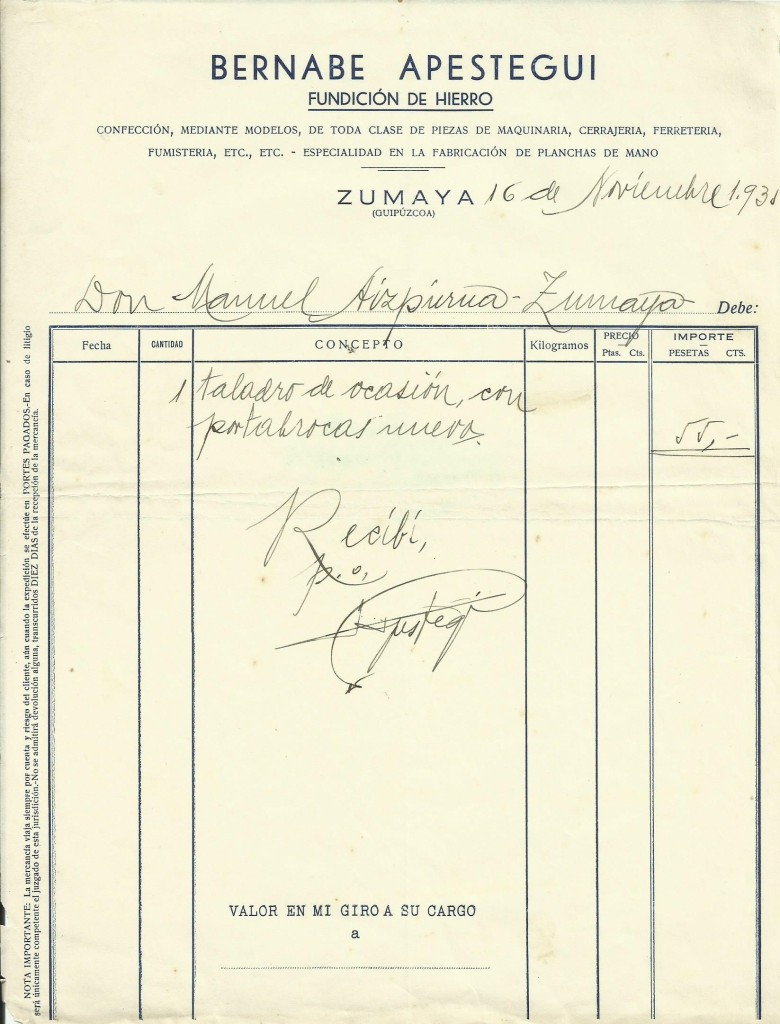 BERNABE APESTEGUI
FUNDICIÓN DE HIERRO
CONFECCIÓN, MEDIANTE MODELOS, DE TODA CLASE DE PIEZAS DE MAQUINARIA, CERRAJERIA, FERRETERIA,
FUMISTERIA, ETC., ETC. - ESPECIALIDAD EN LA FABRICACIÓN DE PLANCHAS DE MANO
ZUMAYA 16 de Noviembre
(GUIPÚZCOA)
Don Manuel Aizpurua - Zumaya Debe:
Fecha CANTIDAD CONCEPTO Kilogramos PRECIO Ptas. Cts. IMPORTE PESETAS CTS.
1 taladro de ocasión, con
portabrocas nuevo. 55,-
Recibí,
p.o,
Apestegi
VALOR EN MI GIRO A SU CARGO
a
NOTA IMPORTANTE: La mercancía viaja siempre por cuenta y riesgo del cliente, aún cuando la expedición se efectúe en PORTES PAGADOS.-En caso de litigio
será únicamente competente el juzgado de esta jurisdicción.-No se admitirá devolución alguna, transcurridos DIEZ DIAS de la recepción de la mercancía.